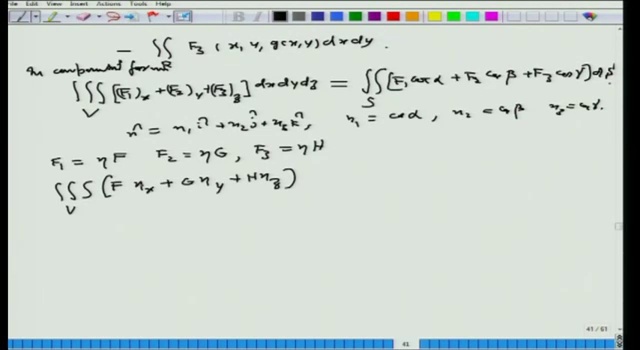 File Edit View Insert Actions Tools Help
− ∬_R F₃(x, y, g(x,y)) dx dy.
In component form
∭_V [(F₁)ₓ + (F₂)_y + (F₃)_z] dx dy dz = ∬_S [F₁ cos α + F₂ cos β + F₃ cos γ] ds
n̂ = n₁ î + n₂ ĵ + n₃ k̂, n₁ = cos α, n₂ = cos β n₃ = cos γ.
F₁ = ηF F₂ = ηG, F₃ = ηH
∭_V (F ηₓ + G η_y + H η_z)
41 / 61
41